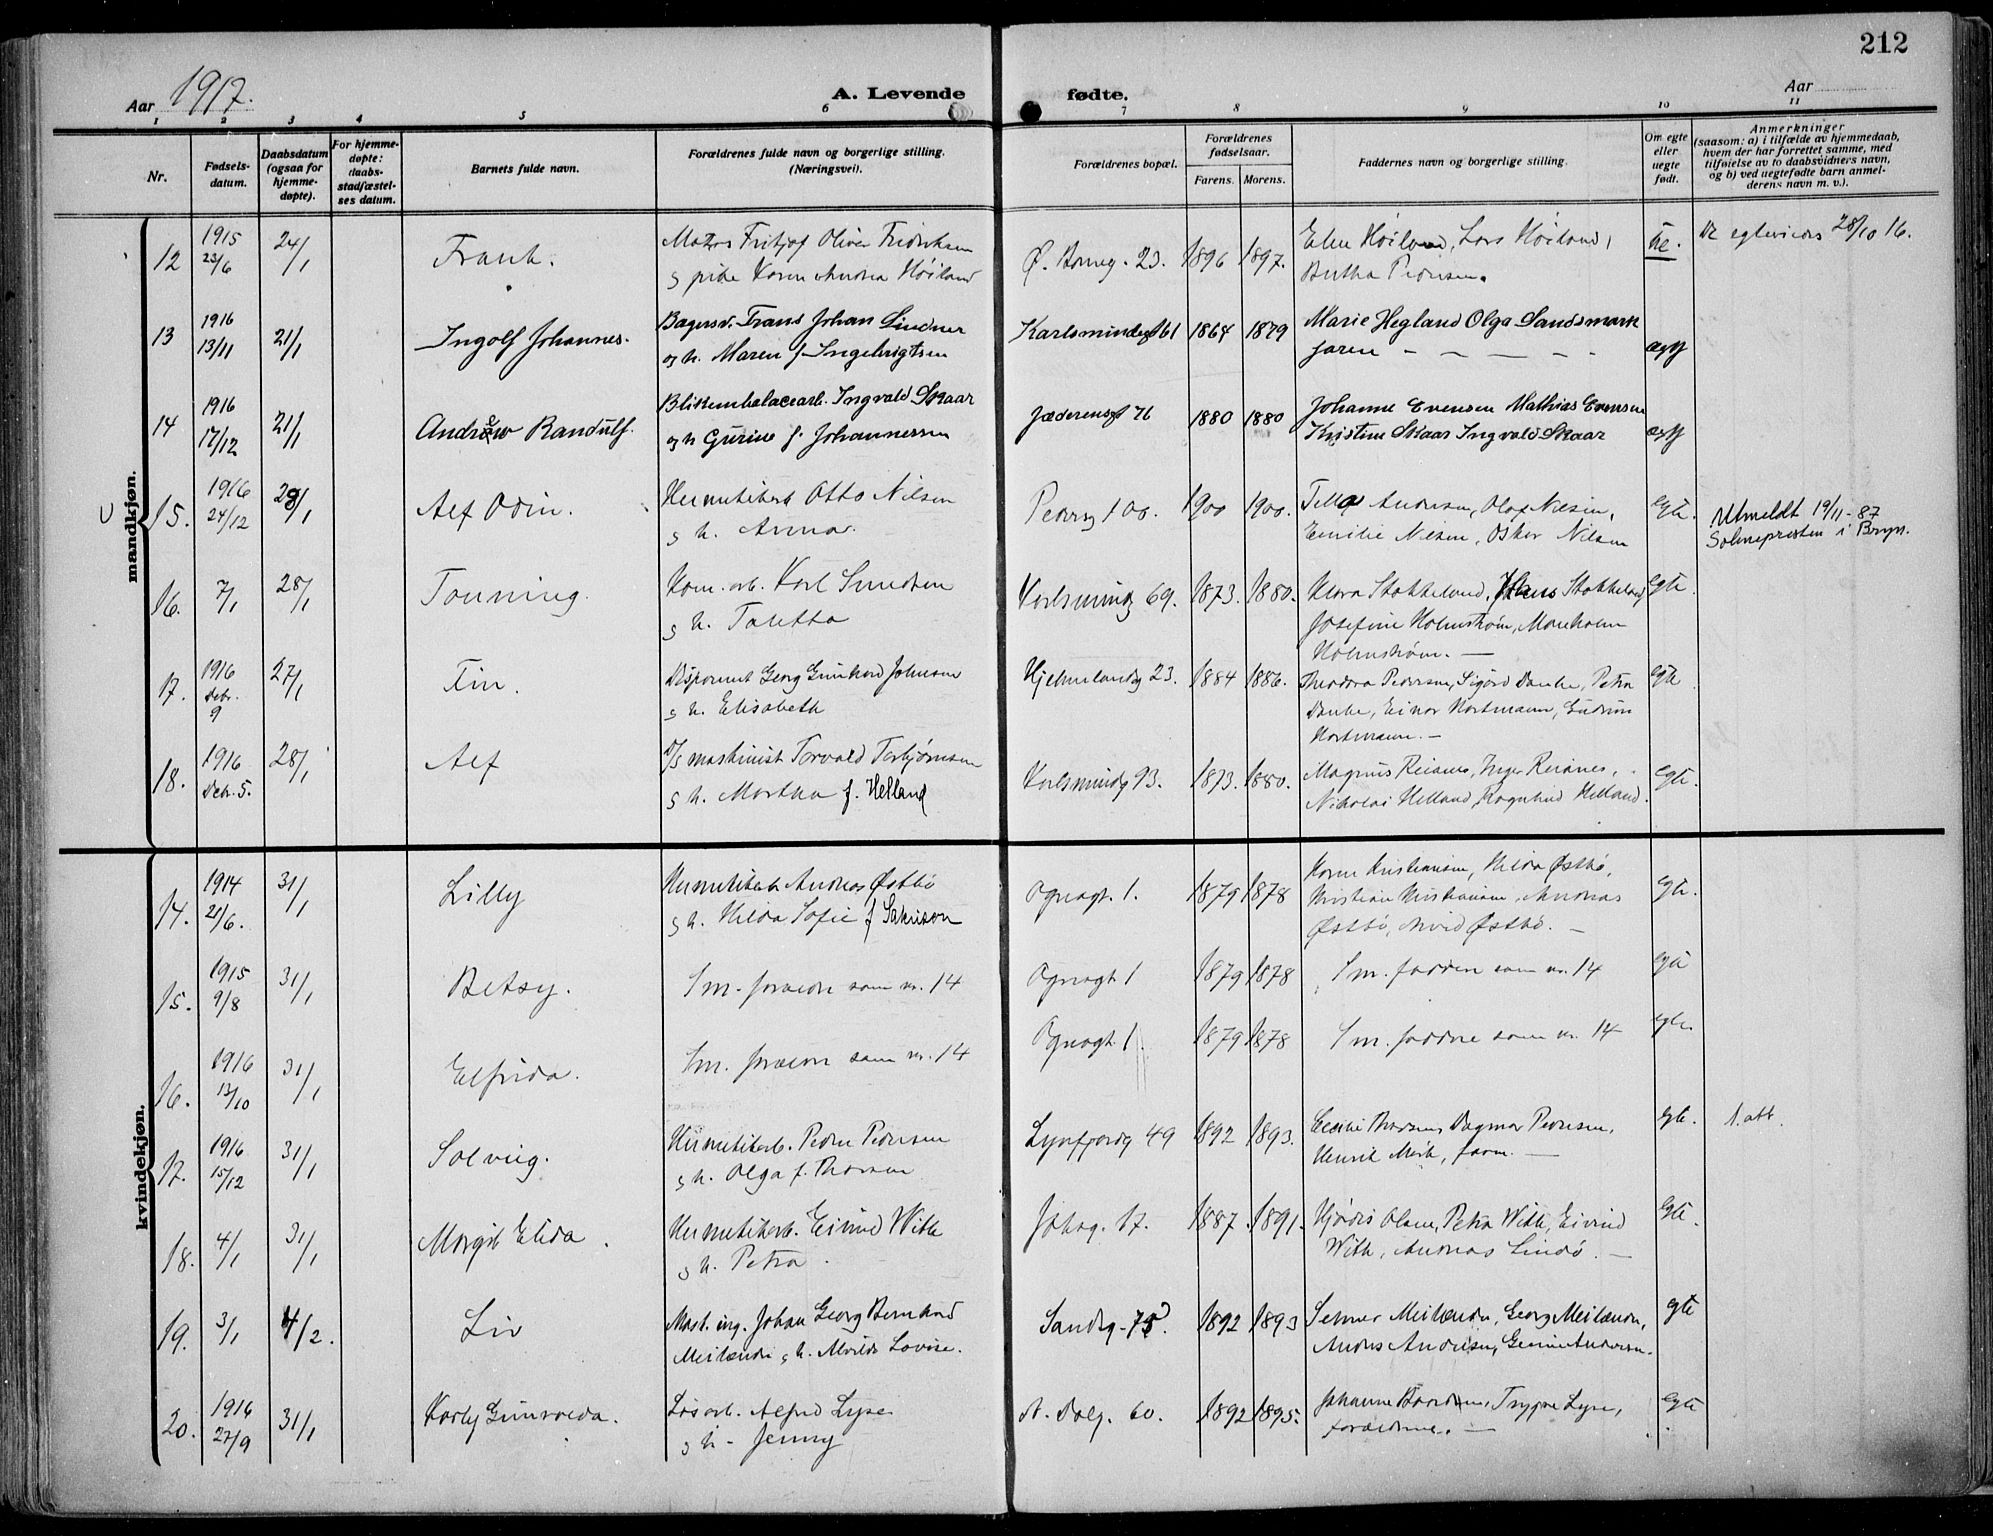 212
Aar 1917.
A. Levende fødte.
Aar
1 2 3 4 5 6 7 8 9 10 11
Nr.
Fødsels-
datum.
Daabsdatum
(ogsaa for
hjemme-
døpte).
For hjemme-
døpte:
daabs-
stadfæstel-
ses datum.
Barnets fulde navn.
Forældrenes fulde navn og borgerlige stilling.
(Næringsvei).
Forældrenes bopæl.
Forældrenes
fødselsaar.
Farens. Morens.
Faddernes navn og borgerlige stilling.
Om egte
eller
uegte
født.
Anmerkninger
(saasom: a) i tilfælde av hjemmedaab,
hvem der har forrettet samme, med
tilføielse av to daabsvidners navn,
og b) ved uegtefødte barn anmel-
derens navn m. v.).
mandkjøn.
12 1915 23/6 24/1 Frank. Matros Fritjof Oliver Fredriksen Ø. 23. 1896 1897. Høiland, Lars Høiland, ue. 28/10 16.
g pike Karen Andrea Høiland Bertha Pedersen.
13 1916 13/11 21/1 Ingolf Johannes. Bagersv. Frans Johan Lindner Karlsmindegt 61 1864 1879 Marie Hegland Olga Sandsmark ægtf
og h. Maren f. Ingebrigtsen faren — — — — —
14 1916 17/12 21/1 Andrew Randulf. Blikemballagearb. Ingvald Skaar Jæderensgt 76 1880 1880 Johanne Evensen Mathias Evensen ægtf
og h Gurine f. Johannessen Kristine Skaar Ingvald Skaar
15. 1916 24/12 28/1 Alf Odin. Hermetikarb. Otto Nilsen Pedersg 100. 1900 1900. Andersen, Olaf Nilsen, Egte. Utmeldt 19/11-87
g h. Anna. Emilie Nilsen, Oskar Nilsen Soknepresten i Bryn.
16. 7/1 28/1 Tonning. Kom. arb. Karl Knudsen Karlsmindg 69. 1873. 1880. Klara Stokkeland, Stokkeland Egte.
g h. Taletta Josefine Holmstrøm,
Holmstrøm. —
17. 1916 Dcbr. 9 27/1 Fin. Disponent Georg Johnsen Hjelmelandsg 23. 1884 1886. Theodora Pedersen, Sigurd Danbe, Petra Egte
g h. Elisabeth Danbe, Einar Hartmann, Gudrun
Hartmann. —
18. 1916 Dcbr. 5. 28/1 Alf D/S maskinist Torvald Torbjørnsen Karlsmindg 93. 1873. 1880. Magnus Reianes, Inger Reianes, Egte.
g h. Martha f. Helland Nikolai Helland, Ragnhild Helland.
kvindekjøn.
14. 1914 21/6. 31/1 Lilly Hermetikarb. Andreas Østbø Ognagt. 1. 1879 1878 Karen Kristiansen, Hilda Østbø, Egte.
g h. Hilda Sofie f Sakrison Kristian Kristiansen, Andreas
Østbø, Arvid Østbø. —
15. 1915 9/8 31/1 Betsy. Sm. forældre som nr. 14 Ognagt 1 1879 1878 Sm. faddere som nr. 14 Egte
16. 1916 13/10 31/1 Elfrida. Sm. forældre som nr. 14 Ognagt. 1. 1879 1878 Sm. faddere som nr. 14 Egte.
17. 1916 15/12 31/1 Solveig. Hermetikarb. Peder Pedersen Lysefjordg 49 1892 1893. Thorsen, Dagmar Pedersen, Egte. D. att.
g h. Olga f. Thorsen Henrik Mørk, faren. —
18. 4/1 31/1 Margit Elida. Hermetikarb. Eivind With Jobsg. 17. 1887. 1891. Hjørdis Olsen, Petra With, Eivind Egte.
g h. Petra. With, Andreas Lindø. —
19. 3/1 4/2. Liv Mask. ing. Johan Georg Bernhard Sandsg. 75. 1892 1893 Meilænder, Georg Meilænder, Egte
Meilænder g h. Alvilde Lovise. Andersen.
20. 1916 27/9 31/1 Karly Gunvalda. Løsarb. Alfred Lyse N. Dalg. 60. 1892 1895. Johanne Trygve Lyse, Egte.
g h — Jenny forældrene. —